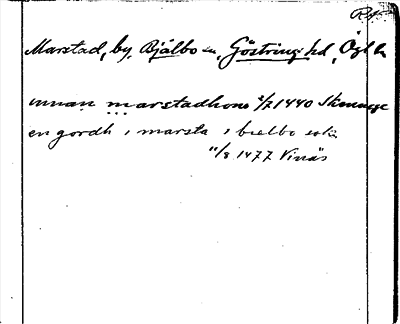 RA.
Marstad, by, Bjälbo sn, Göstring hd, Ögl
innan marstadhom 2/7 1440 Skenninge
en gordh i marsta i bielbo sokn
11/8 1477 Vinäs